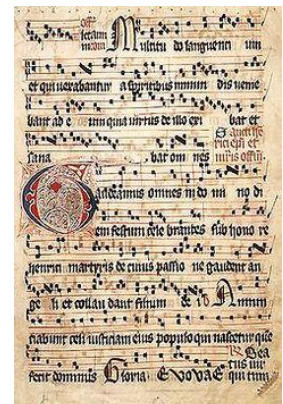 Multitudo languenti um
et qui vexabantur a spiritibus inmun dis venie
bant ad e um quia virtus de illo exi bat et
sana bat om nes
Gaudeamus omnes in do mi no di
em festum cele brantes sub hono re
henrici martyris de cuius passio ne gaudent an
ge li et collau dant filium de i
ciabunt celi iusticiam eius populo qui nascetur que
fecit dominus Gloria EVOVAE qui tim